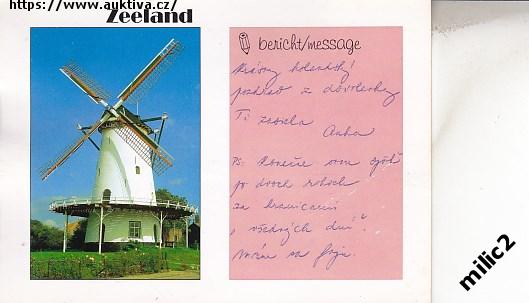 https://www.auktiva.cz/
Zeeland
bericht/message
Krásny holandský
pozdrav z dovolenky
Ti zasiela
Anka
PS: Konečne som opäť
po dvoch rokoch
za hranicami
"všedných dní".
Máme sa fajn.
milic2